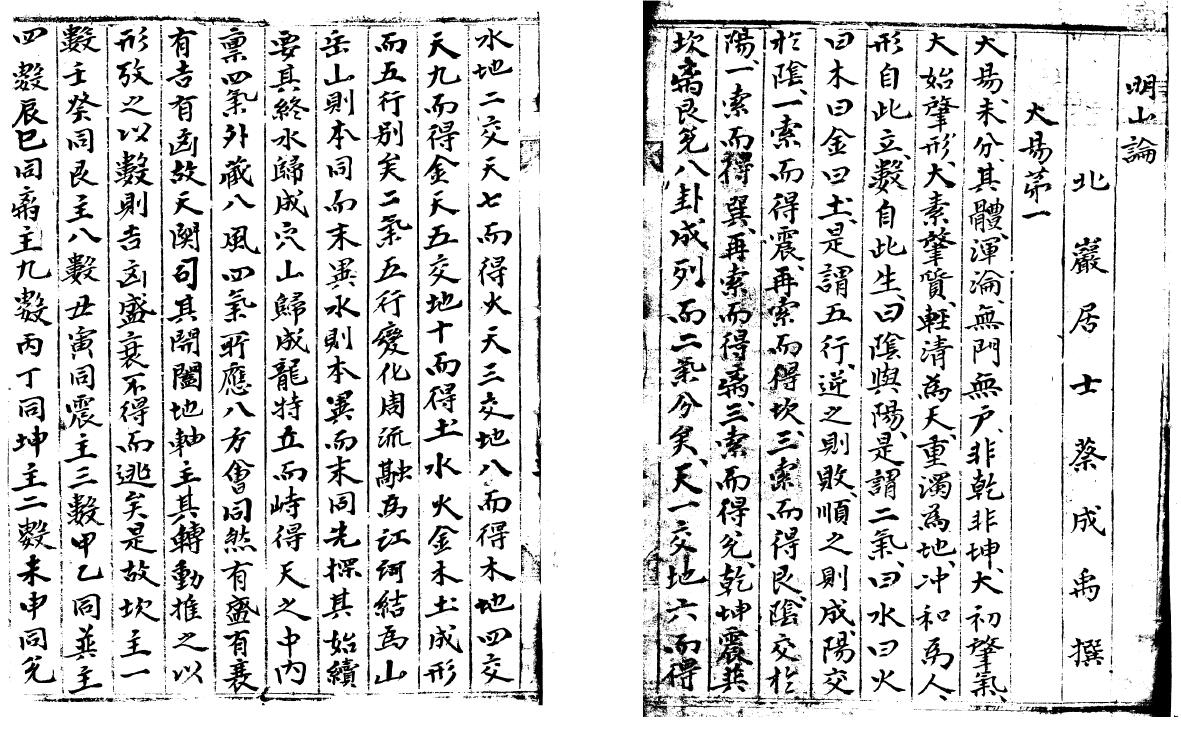 明山論
北巖居士蔡成禹撰
大易苐一
大易未分其體渾淪無門無户非乾非坤大初肇氣
大始肇形大素肇質輕清為天重濁為地冲和為人
形自此立數自此生曰陰與陽是謂二氣曰水曰火
曰木曰金曰土是謂五行逆之則敗順之則成陽交
於陰一索而得震再索而得坎三索而得艮陰交於
陽一索而得巽再索而得离三索而得兊乾坤震巽
坎离艮兊八卦成列而二氣分矣天一交地六而得
水地二交天七而得火天三交地八而得木地四交
天九而得金天五交地十而得土水火金木土成形
而五行別矣二氣五行變化周流融為江河結為山
岳山則本同而末異水則本異而末同先探其始續
要其終水歸成穴山歸成龍特立而峙得天之中内
禀四氣外藏八風四氣所應八方會同然有盛有衰
有吉有凶故天関司其開闔地軸主其轉動推之以
形攷之以數則吉凶盛衰不得而逃矣是故坎主一
數壬癸同艮主八數丑寅同震主三數甲乙同巽主
四數辰巳同离主九數丙丁同坤主二數未申同兊